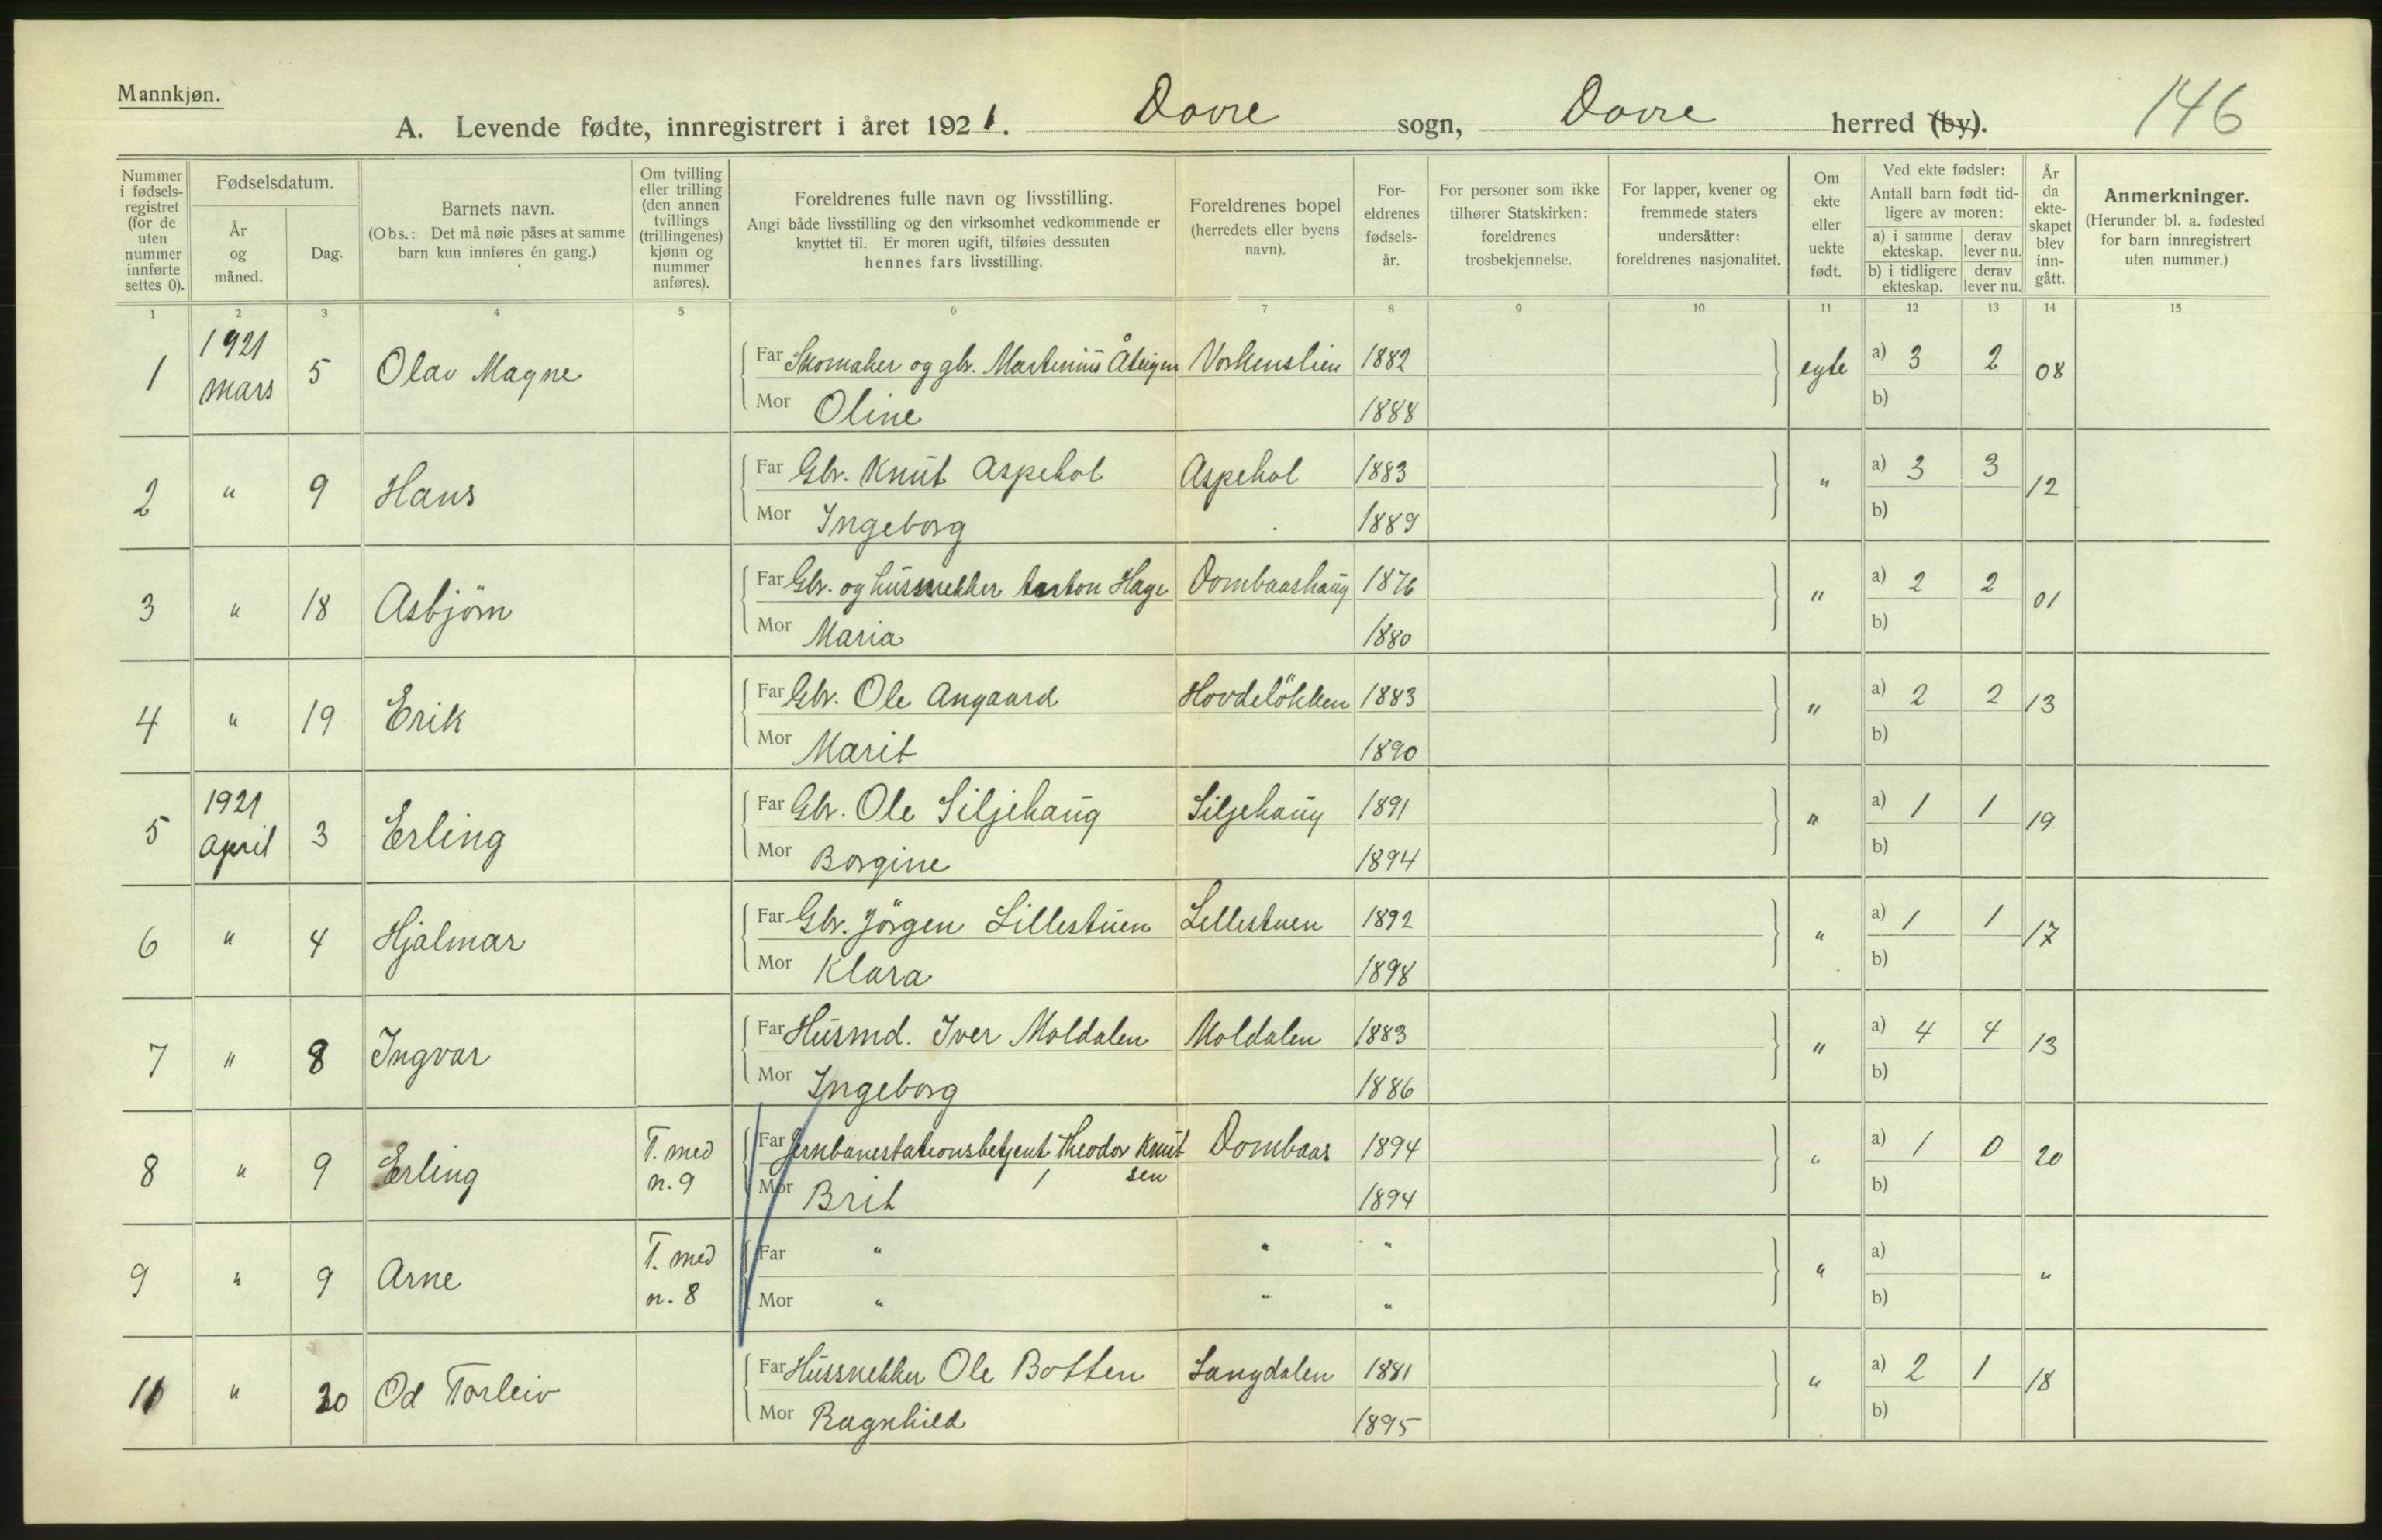 Mannkjøn.
A. Levende fødte, innregistrert i året 1921. Dovre sogn, Dovre herred (by). 146
Nummer i fødsels- registret (for de uten nummer innførte settes 0).
Fødselsdatum.
År og måned.
Dag.
Barnets navn.
(Obs.: Det må nøie påses at samme barn kun innføres én gang.)
Om tvilling eller trilling (den annen tvillings (trillingenes) kjønn og nummer anføres).
Foreldrenes fulle navn og livsstilling.
Angi både livsstilling og den virksomhet vedkommende er knyttet til. Er moren ugift, tilføies dessuten hennes fars livsstilling.
Foreldrenes bopel (herredets eller byens navn).
For- eldrenes fødsels- år.
For personer som ikke tilhører Statskirken: foreldrenes trosbekjennelse.
For lapper, kvener og fremmede staters undersåtter: foreldrenes nasjonalitet.
Om ekte eller uekte født.
Ved ekte fødsler: Antall barn født tid- ligere av moren:
a) i samme ekteskap. derav lever nu.
b) i tidligere ekteskap. derav lever nu.
År da ekte- skapet blev inn- gått.
Anmerkninger.
(Herunder bl. a. fødested for barn innregistrert uten nummer.)
1 2 3 4 5 6 7 8 9 10 11 12 13 14 15
1 1921 mars 5 Olav Magne Far Skomaker og gbr. Martinius Åteigen Vorkenslien 1882 egte a) 3 2 08
Mor Oline 1888 b)
2 " 9 Hans Far Gbr. Knut Aspehol Aspehol 1883 " a) 3 3 12
Mor Ingeborg 1889 b)
3 " 18 Asbjörn Far Gbr. og hussnekker Anton Hage Dombaashaug 1876 " a) 2 2 01
Mor Maria 1880 b)
4 " 19 Erik Far Gbr. Ole Angaard Hovdelökken 1883 " a) 2 2 13
Mor Marit 1890 b)
5 1921 April 3 Erling Far Gbr. Ole Siljehaug Siljehaug 1891 " a) 1 1 19
Mor Borgine 1894 b)
6 " 4 Hjalmar Far Gbr. Jörgen Lillestuen Lillestuen 1892 " a) 1 1 17
Mor Klara 1898 b)
7 " 8 Ingvar Far Husmd. Iver Moldalen Moldalen 1883 " a) 4 4 13
Mor Ingeborg 1886 b)
8 " 9 Erling T. med n. 9 Far Jernbanestationsbetjent Theodor Knutsen Dombaas 1894 " a) 1 0 20
Mor Brit 1894 b)
9 " 9 Arne T. med n. 8 Far " " " " a) "
Mor " " " b)
10 " 20 Od Torleiv Far Hussnekker Ole Botten Langdalen 1881 " a) 2 1 18
Mor Ragnhild 1895 b)